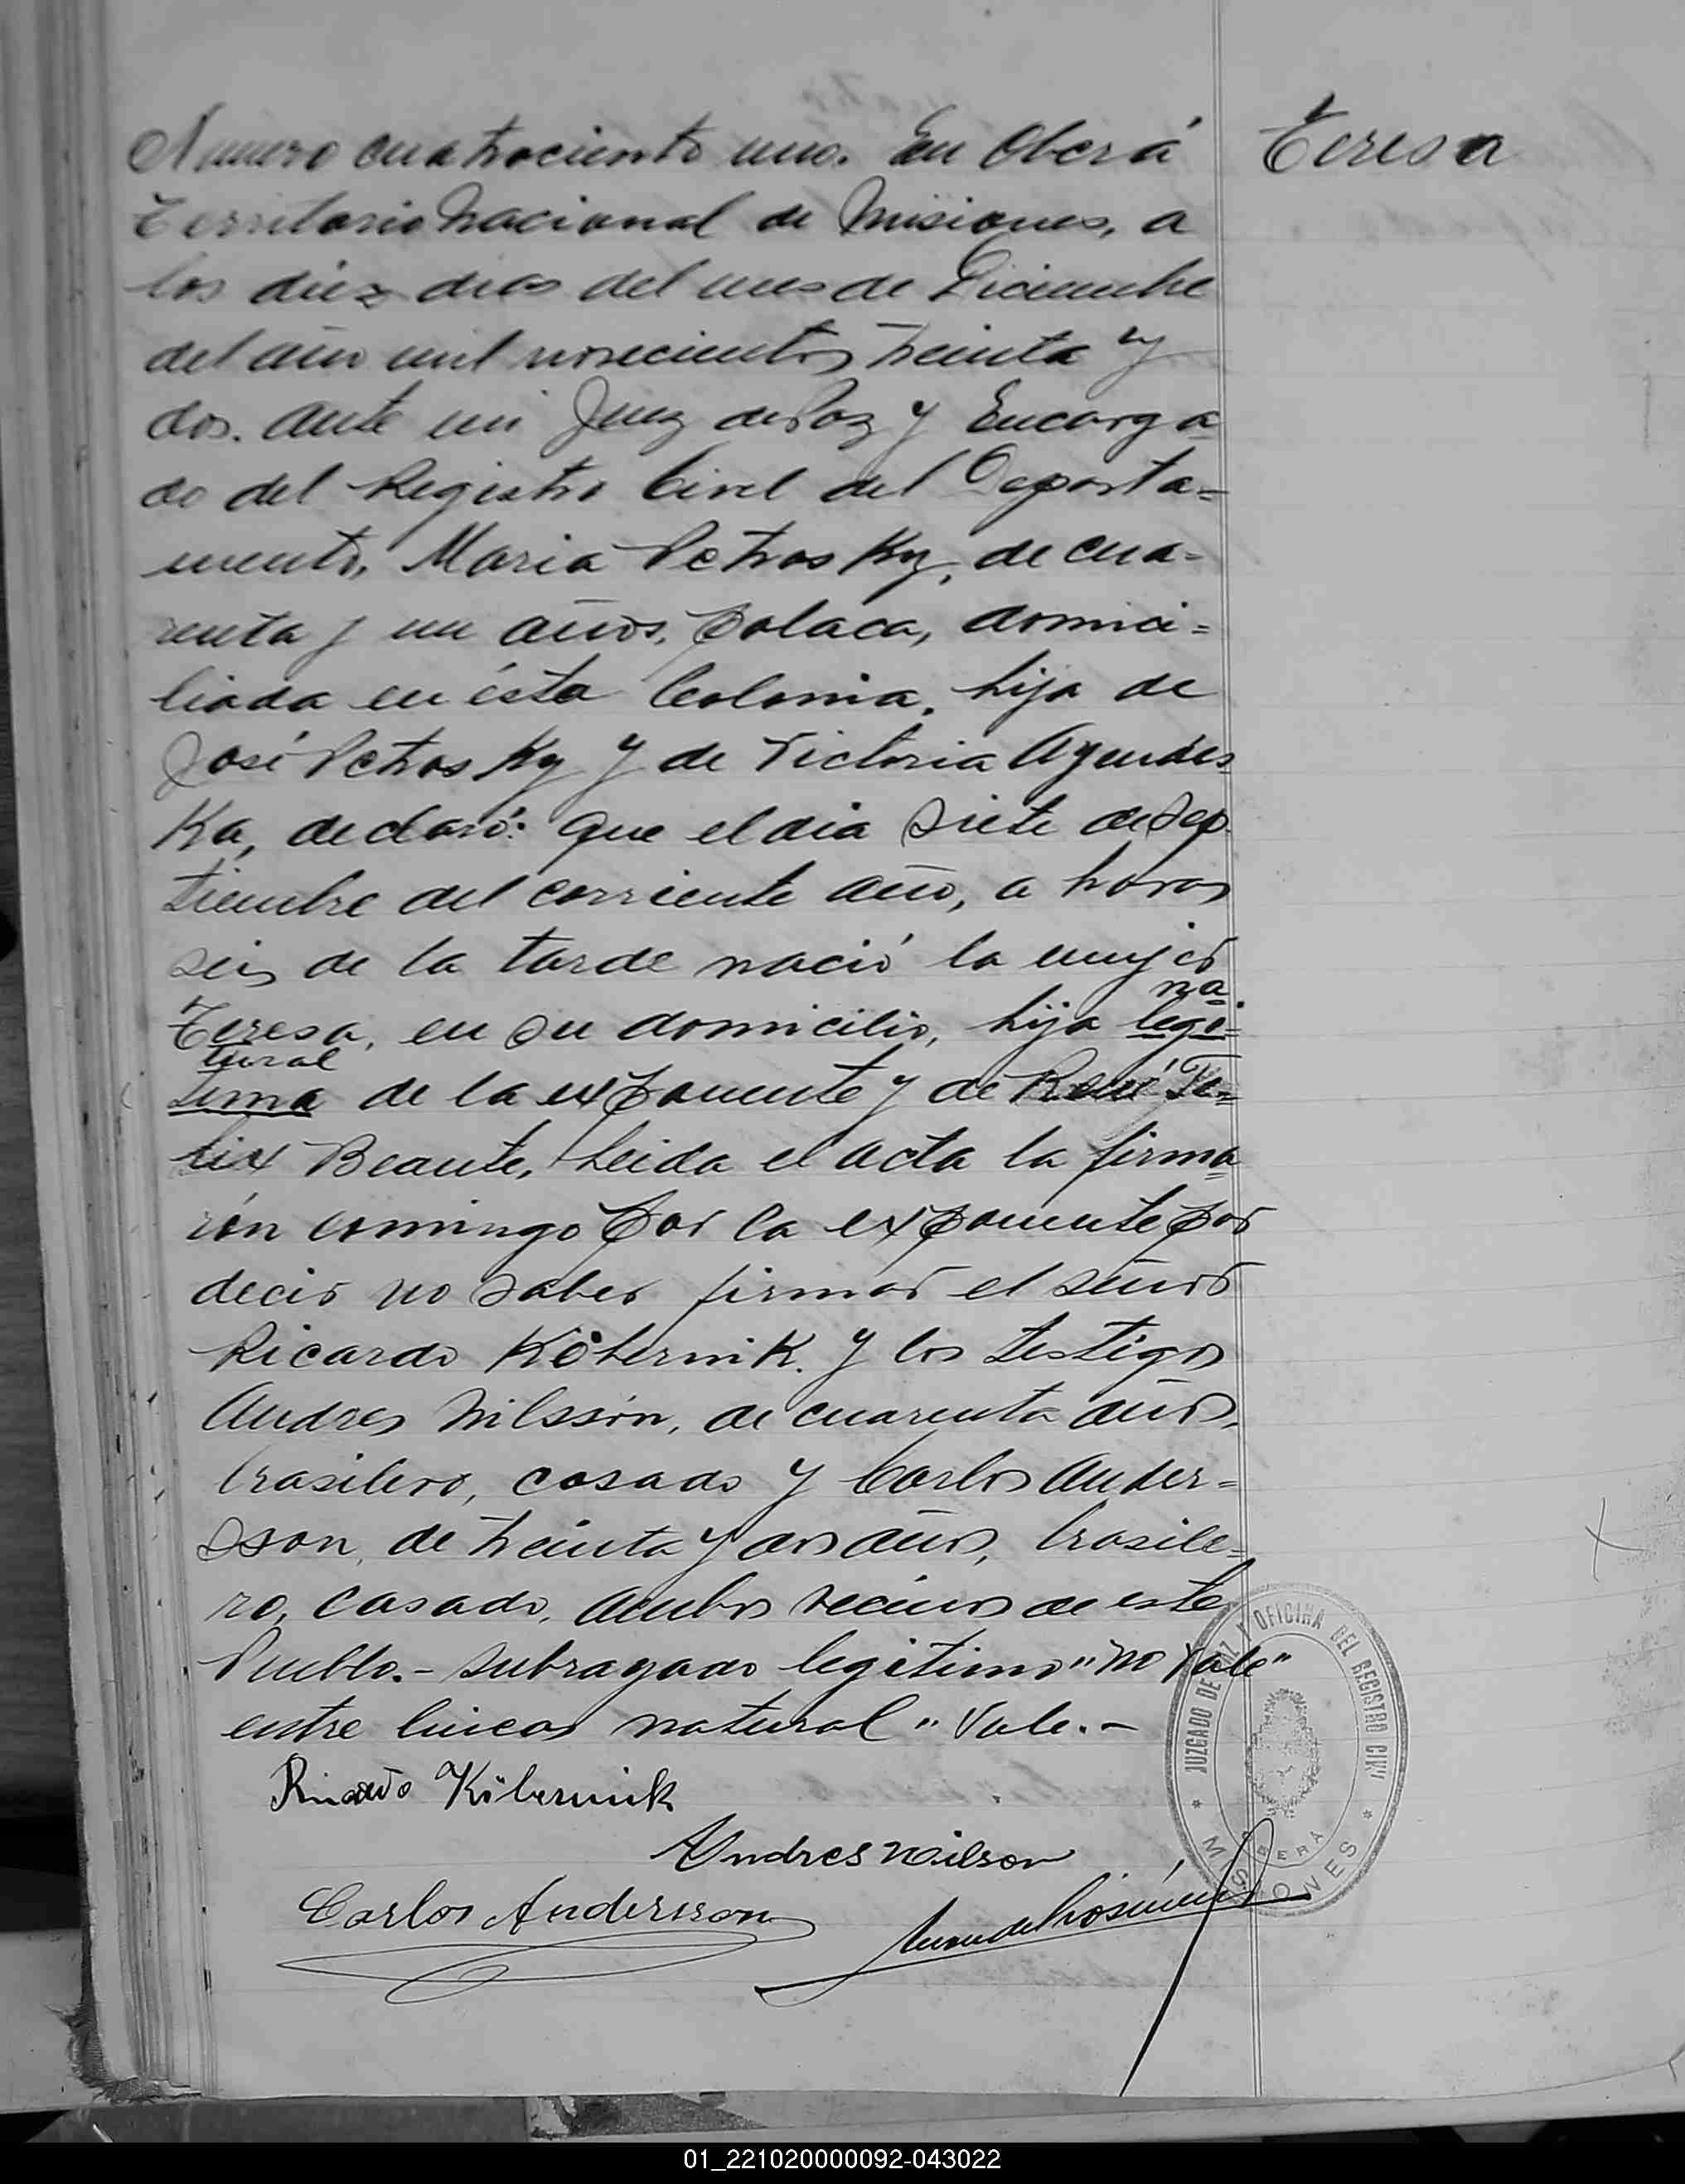 Numero cuatrociento uno. En Oberá
Teresa
Territorio Nacional de Misiones, a
los diez dias del mes de Diciembre
del año mil novecientos treinta y
dos. ante mi Juez de Paz y Encarga
do del Registro Civil del Departa=
mento, Maria Petrosky, de cua-
renta y un años, polaca, domici=
liada en ésta Colonia, hija de
José Petrosky y de Victoria
Ka, declaró: Que el dia siete de Sep
tiembre del corriente año, a horas
seis de la tarde nació la mujer
na
Teresa, en su domicilio, hija legi=
tural
tima de la exponente y de René Fe=
lix Beaute, Leida el acta la firma
rón comingo por la exponente por
decir no saber firmar el señor
Ricardo Köbernik. y los testigos
Andres Nilssón, de cuarenta años,
brasilero, casado y Carlos Ander=
sson, de treinta y dos años, brasile=
ro, casado, ambos vecinos de este
Pueblo.- Subrayado legitimo "no vale"
entre lineas natural "Vale.-
Ricardo Köbernick
Andres Nilson
Carlos Andersson
JUZGADO DE PAZ Y OFICINA DEL REGISTRO CIVIL
OBERÁ
* MISIONES *
01_221020000092-043022